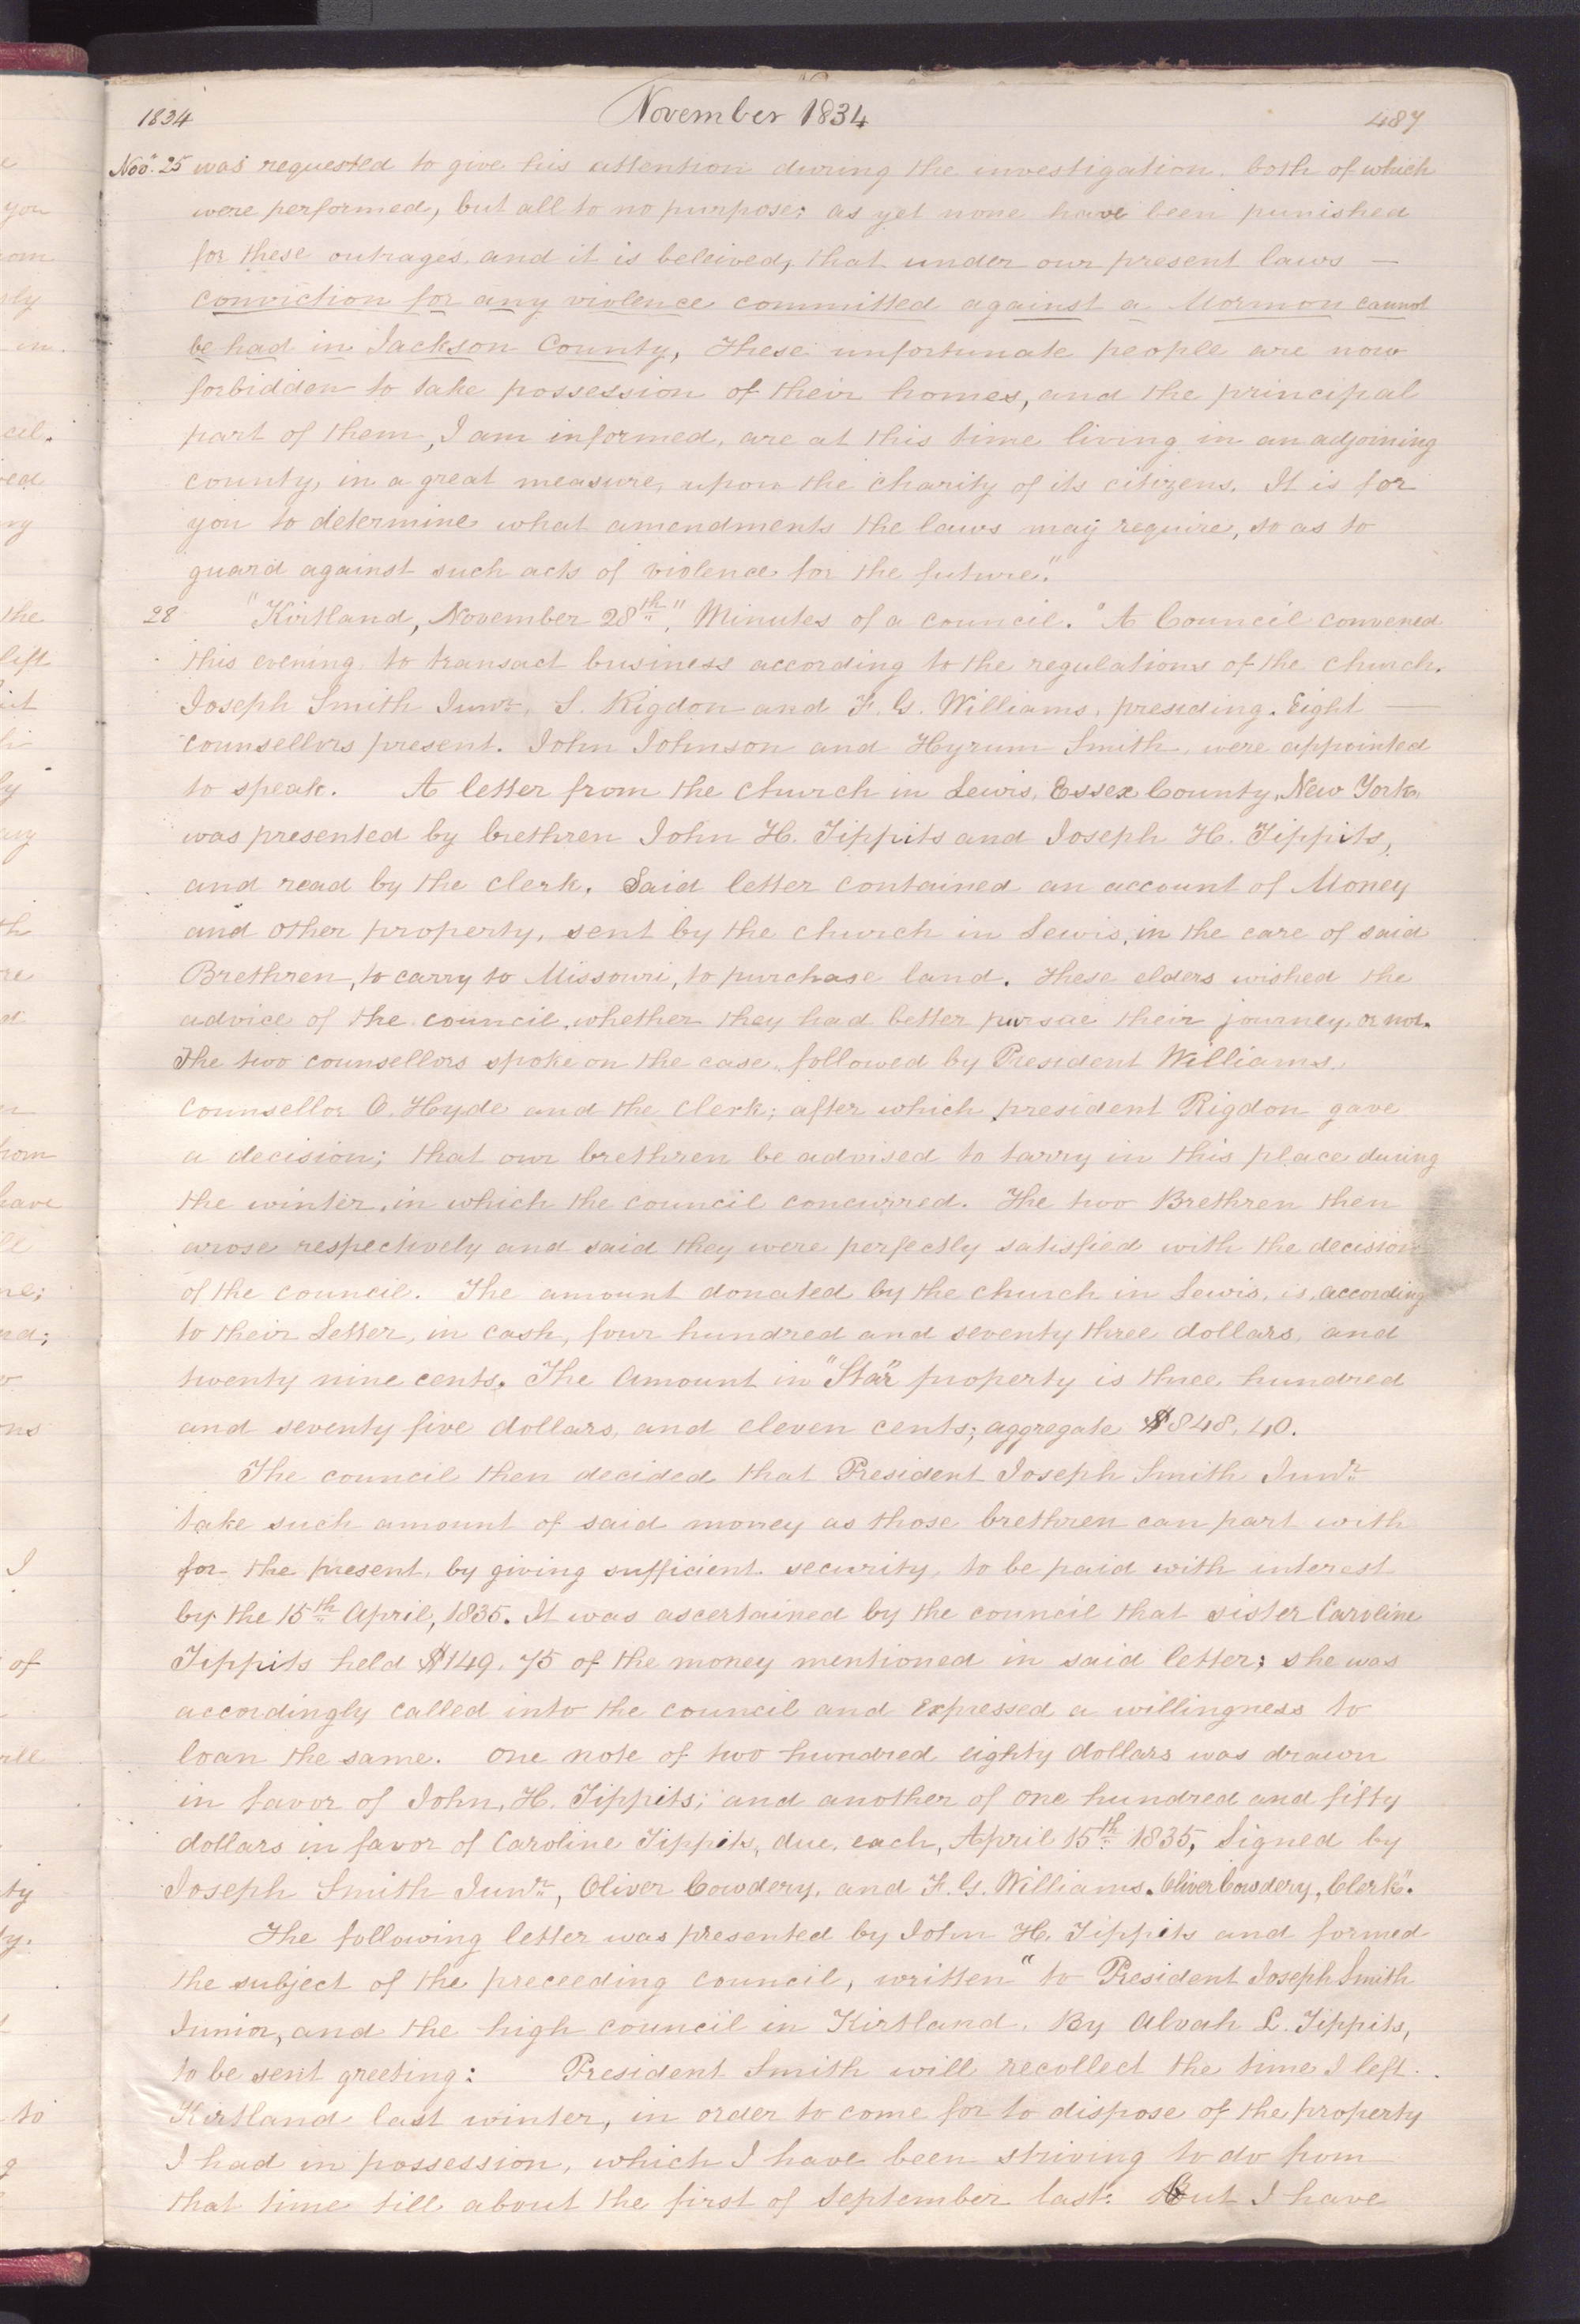 1834 November 1834 487
Nov. 25 was requested to give his attention during the investigation, both of which
were performed, but all to no purpose; as yet none have been punished
for these outrages, and it is beleived, that under our present laws —
conviction for any violence committed against a Mormon cannot
be had in Jackson County, These unfortunate people are now
forbidden to take possession of their homes, and the principal
part of them, I am informed, are at this time living in an adjoining
county, in a great measure, upon the charity of its citizens. It is for
you to determine what amendments the laws may require, so as to
guard against such acts of violence for the future."
28 "Kirtland, November 28th", Minutes of a council. "A Council convened
this evening to transact business according to the regulations of the church.
Joseph Smith Junr, S. Rigdon and F. G. Williams, presiding. Eight —
counsellors present. John Johnson and Hyrum Smith, were appointed
to speak. A letter from the church in Lewis, Essex County, New York,
was presented by brethren John H. Tippits and Joseph H. Tippits,
and read by the clerk. Said letter contained an account of Money
and other property, sent by the church in Lewis, in the care of said
Brethren, to carry to Missouri, to purchase land. These elders wished the
advice of the council, whether they had better pursue their journey, or not.
The two counsellors spoke on the case, followed by President Williams,
Counsellor O. Hyde and the clerk; after which president Rigdon gave
a decision; that our brethren be advised to tarry in this place during
the winter, in which the council concurred. The two Brethren then
arose respectively and said they were perfectly satisfied with the decision
of the council. The amount donated by the church in Lewis, is, according
to their Letter, in cash, four hundred and seventy three dollars, and
twenty nine cents. The Amount in "Star" property is three hundred
and seventy five dollars, and eleven cents; aggregate $848,40.
The council then decided that President Joseph Smith Junr
take such amount of said money as those brethren can part with
for the present, by giving sufficient security, to be paid with interest
by the 15th April, 1835. It was ascertained by the council that sister Caroline
Tippits held $149,75 of the money mentioned in said letter; she was
accordingly called into the council and expressed a willingness to
loan the same. One note of two hundred eighty dollars was drawn
in favor of John, H. Tippits; and another of one hundred and fifty
dollars in favor of Caroline Tippits, due, each, April 15th 1835, Signed by
Joseph Smith Junr, Oliver Cowdery, and F. G. Williams. Oliver Cowdery, Clerk".
The following letter was presented by John H. Tippits and formed
the subject of the preceeding council, written "to President Joseph Smith
Junior, and the high council in Kirtland. By Alvah L. Tippits,
to be sent greeting: President Smith will recollect the time I left
Kirtland last winter, in order to come for to dispose of the property
I had in possession, which I have been striving to do from
that time till about the first of September last. But I have